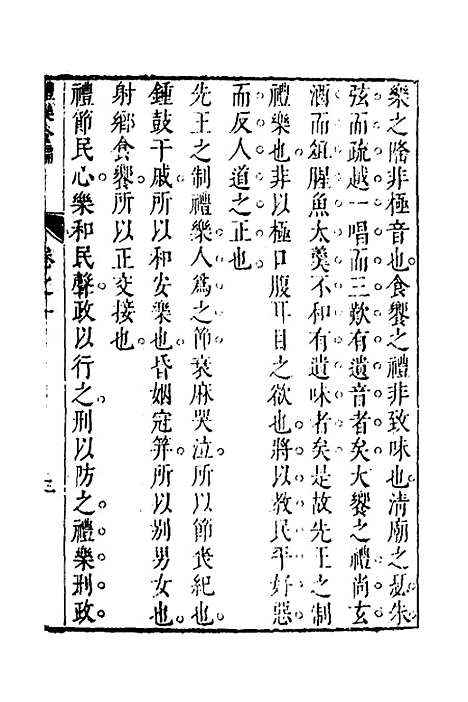 樂之隆非極音也食饗之禮非致味也淸廟之瑟朱
弦而疏越一唱而三歎有遺音者矣大饗之禮尚玄
酒而俎腥魚大羹不和有遺味者矣是故先王之制
禮樂也非以極口腹耳目之欲也將以教民平好惡
而反人道之正也
先王之制禮樂人爲之節衰麻哭泣所以節喪紀也
鍾鼓干戚所以和安樂也昏姻冠笄所以别男女也
射鄉食饗所以正交接也
禮節民心樂和民聲政以行之刑以防之禮樂刑政
禮樂合編
卷之一
三